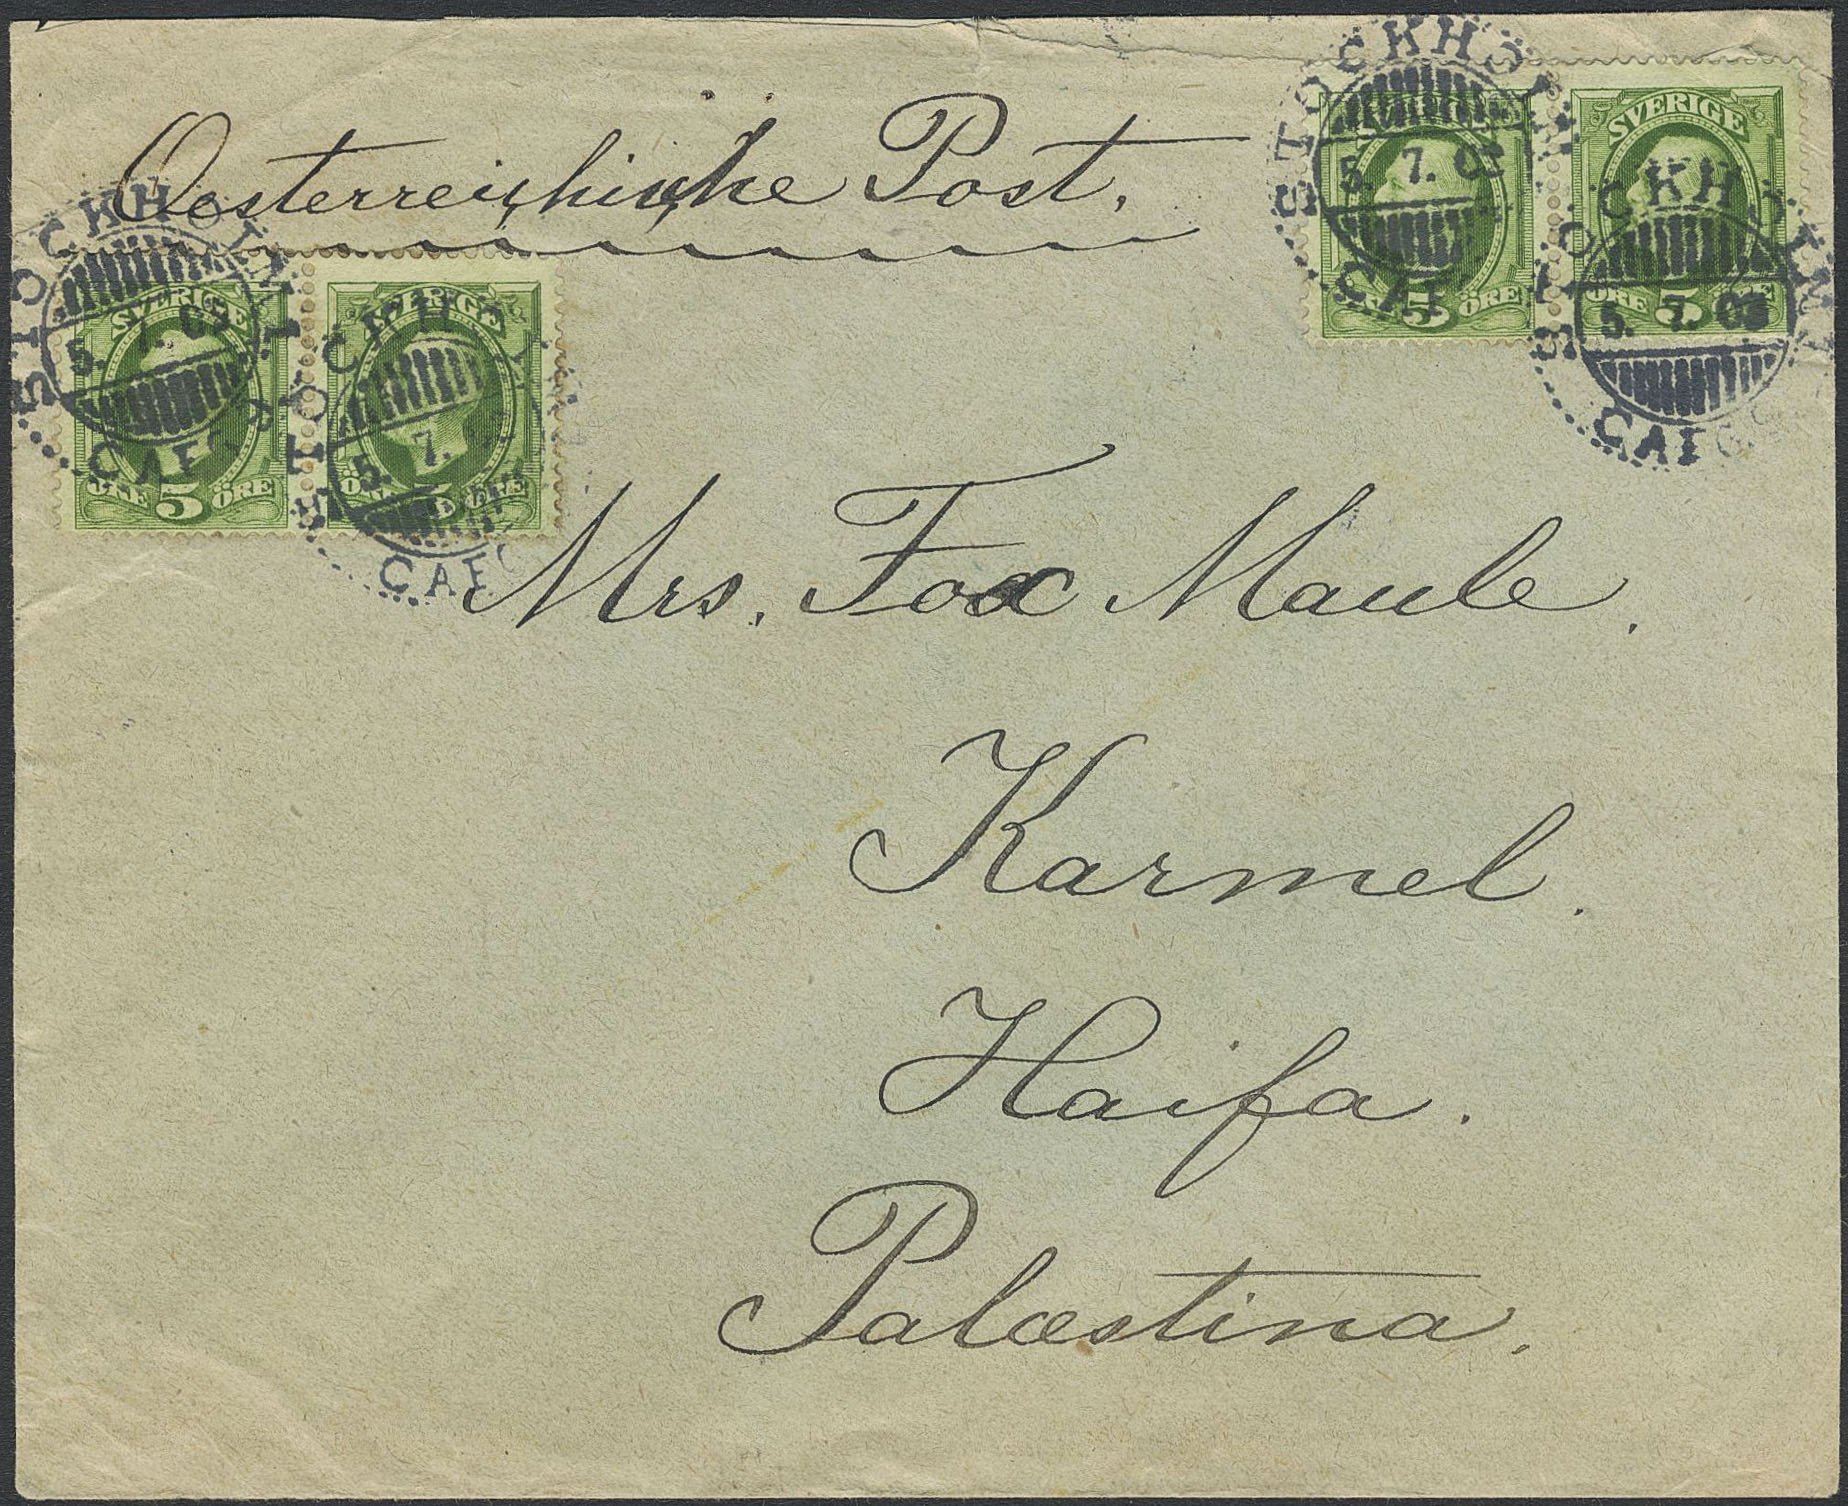 Oesterreichische Post.
STOCKHOLM
5. 7. 03
SVERIGE
ÖRE 5 ÖRE
STOCKHOLM
5. 7. 03
SVERIGE
ÖRE 5 ÖRE
STOCKHOLM
5. 7. 03
SVERIGE
ÖRE 5 ÖRE
STOCKHOLM
5. 7.
SVERIGE
Mrs. Fox Maule.
Karmel.
Haifa.
Palæstina.